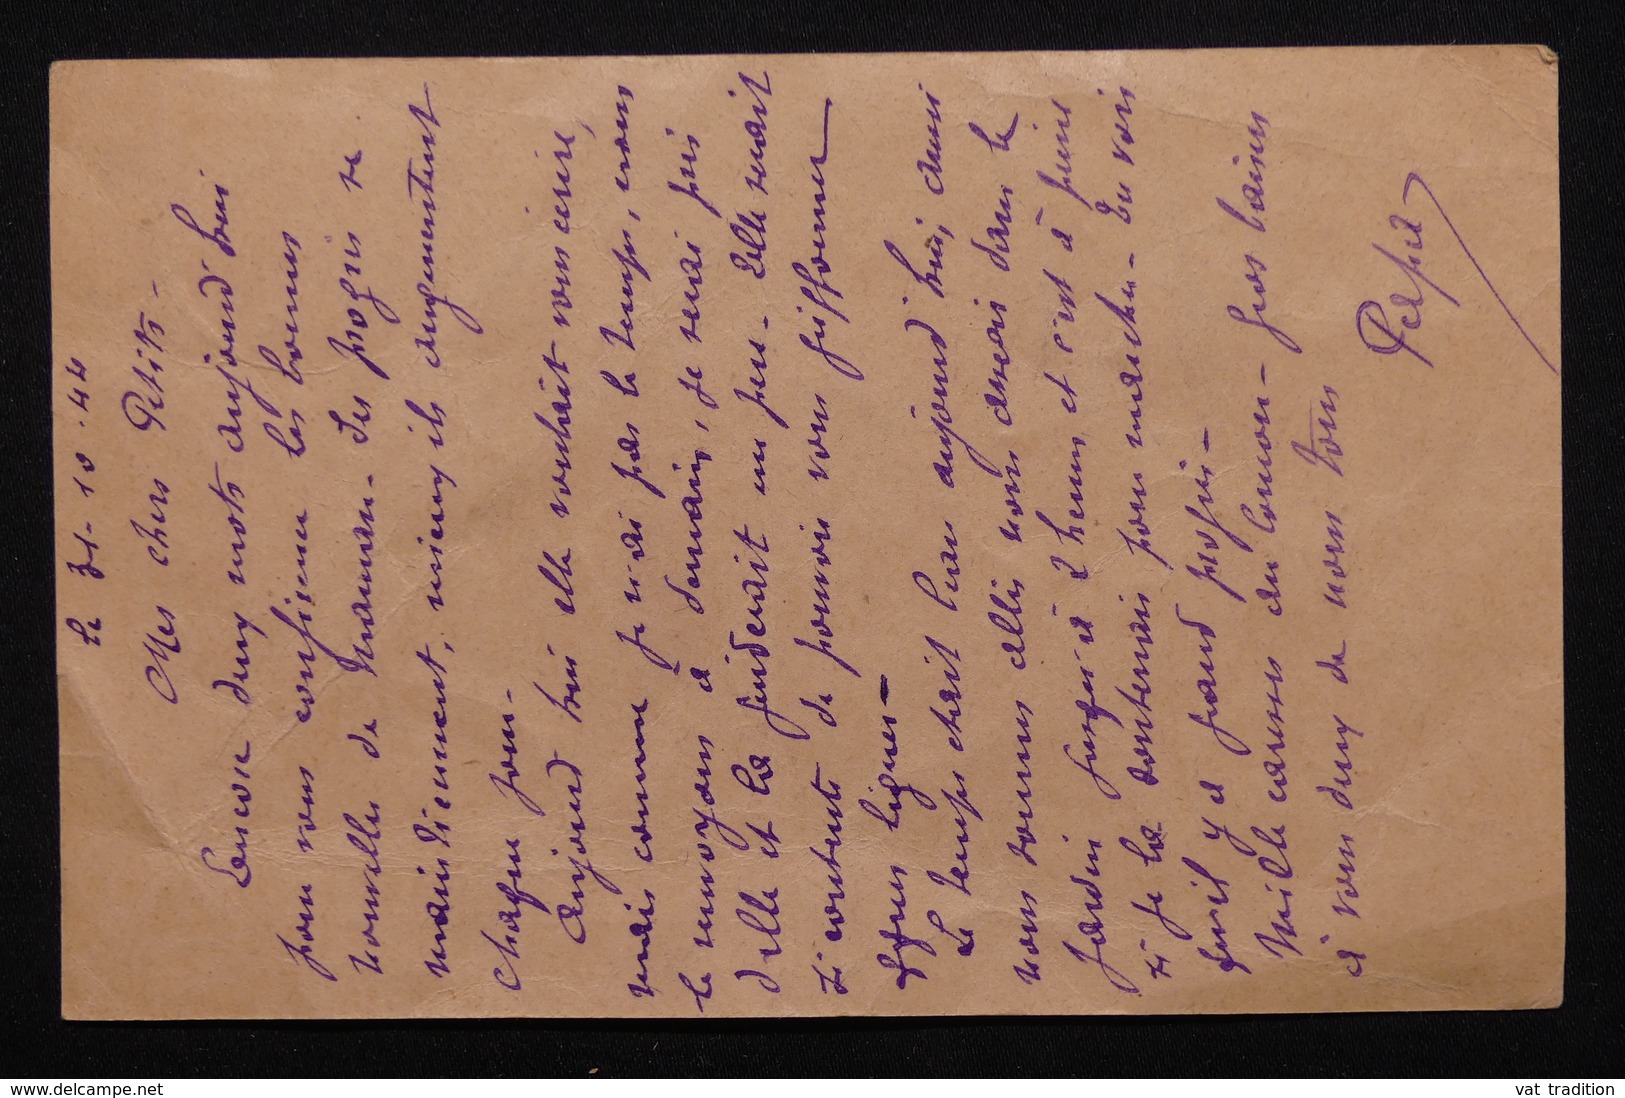 le 31.10.44
Mes chers Petits -
Encore deux mots aujourd'hui
pour vous confirmer les bonnes
nouvelles de Maman - Les progrès se
maintiennent, mieux ils augmentent
chaque jour -
Aujourd'hui elle voulait vous écrire,
mais comme je n'ai pas le temps, nous
le renvoyons à demain, je serai près
d'elle et la guiderait un peu - Elle serait
si contente de pouvoir vous griffonner
qques lignes -
Le temps était beau aujourd'hui, aussi
nous sommes allés nous asseoir dans le
jardin jusqu'à 2 heures et c'est à peine
si je la soutenais pour marcher - Tu vois
qu'il y a grand progrès -
Mille caresses au Coucou - gros baisers
à vous deux de nous tous
Papa
www.delcampe.net
vat tradition